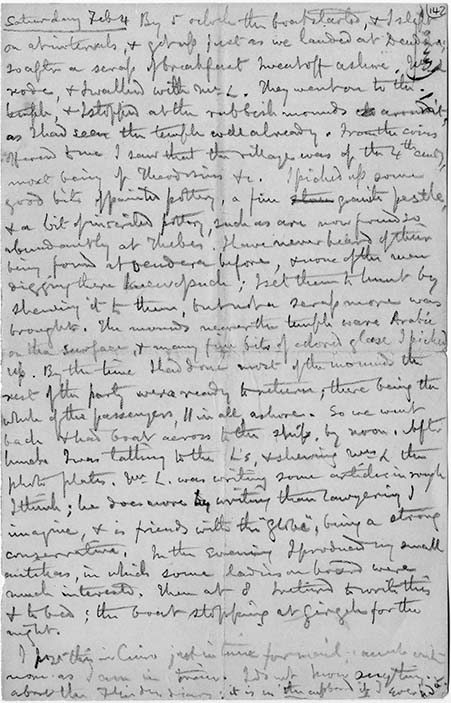 142
Saturday Feb 4 By 5 oclock the boat started & I slept
on at intervals, & got up just as we landed at Dendera;
so after a scrap of breakfast I went off ashore.
rode & I walked with Mr L. They went on to the
temple, & I stopped at the rubbish mounds
as I had seen the temple well already. From the coins
offered to me I saw that the village was of the 4th centy,
most being of Theodosius &c. I picked up some
good bits of painted pottery, a fine granite pestle,
& a bit of inscribed pottery, such as are now found so
abundantly at Thebes. I have never heard of them
being found at Dendera before, & none of the men
digging there knew of such; I set them to hunt by
shewing it to them, but not a scrap more was
brought. The mounds nearer the temple were Arabic
on the surface, & many fine bits of colored glass I picked
up. By the time I had done most of the mounds the
rest of the party were ready to return, there being the
whole of the passengers, 11 in all, ashore. So we went
back & had boat across to the ship, by noon. After
lunch I was talking to the L's, & shewing Mrs L the
photo plates. Mr L. was writing some articles in rough
I think; he does more by writing than lawyering I
imagine, & is friends with the "Globe", being a strong
conservative. In the evening I produced my small
antikas, in which some ladies on board were
much interested. Then at 8 I return to write this
& to bed; the boat stopping at Girgeh for the
night.
I post this in Cairo just in time for mail; cannot write
more as I am in train. I do not know anything
about the Flinders diary; it is in the cupboard if I ever had it.